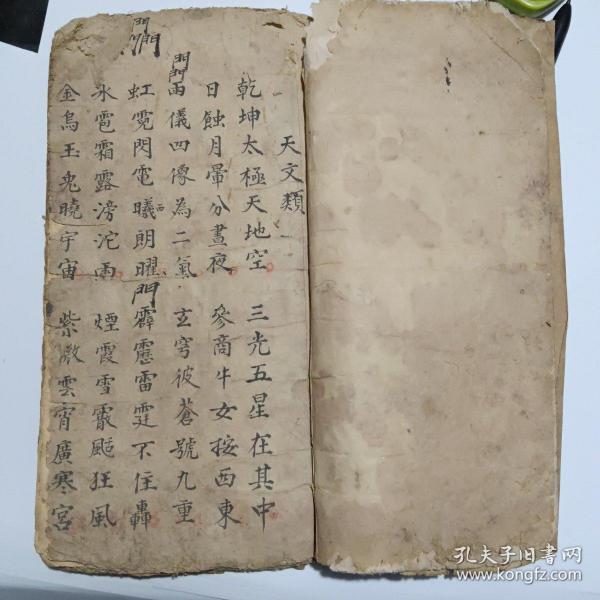 天文類
乾坤太極天地空 三光五星在其中
日蝕月暈分晝夜 參商牛女按西東
兩儀四像為二氣 玄穹彼蒼號九重
虹霓閃電曦朗曜 霹靂雷霆不住轟
氷雹霜露滂沱雨 煙霞雪霰颮狂風
金烏玉兔曉宇宙 紫微雲宵廣寒宮
西
門
門門
門門
孔夫子旧书网
www.kongfz.com